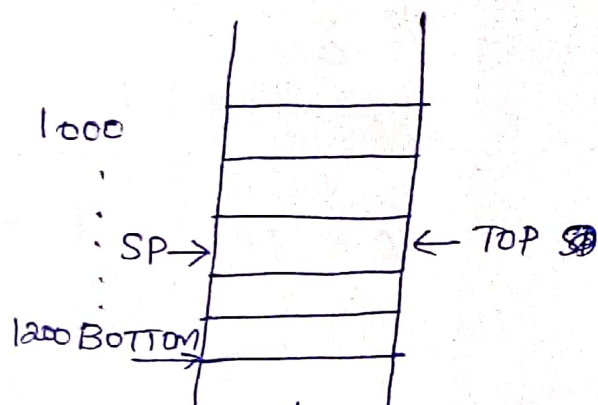 1000
SP→ ← TOP
1200 BOTTOM